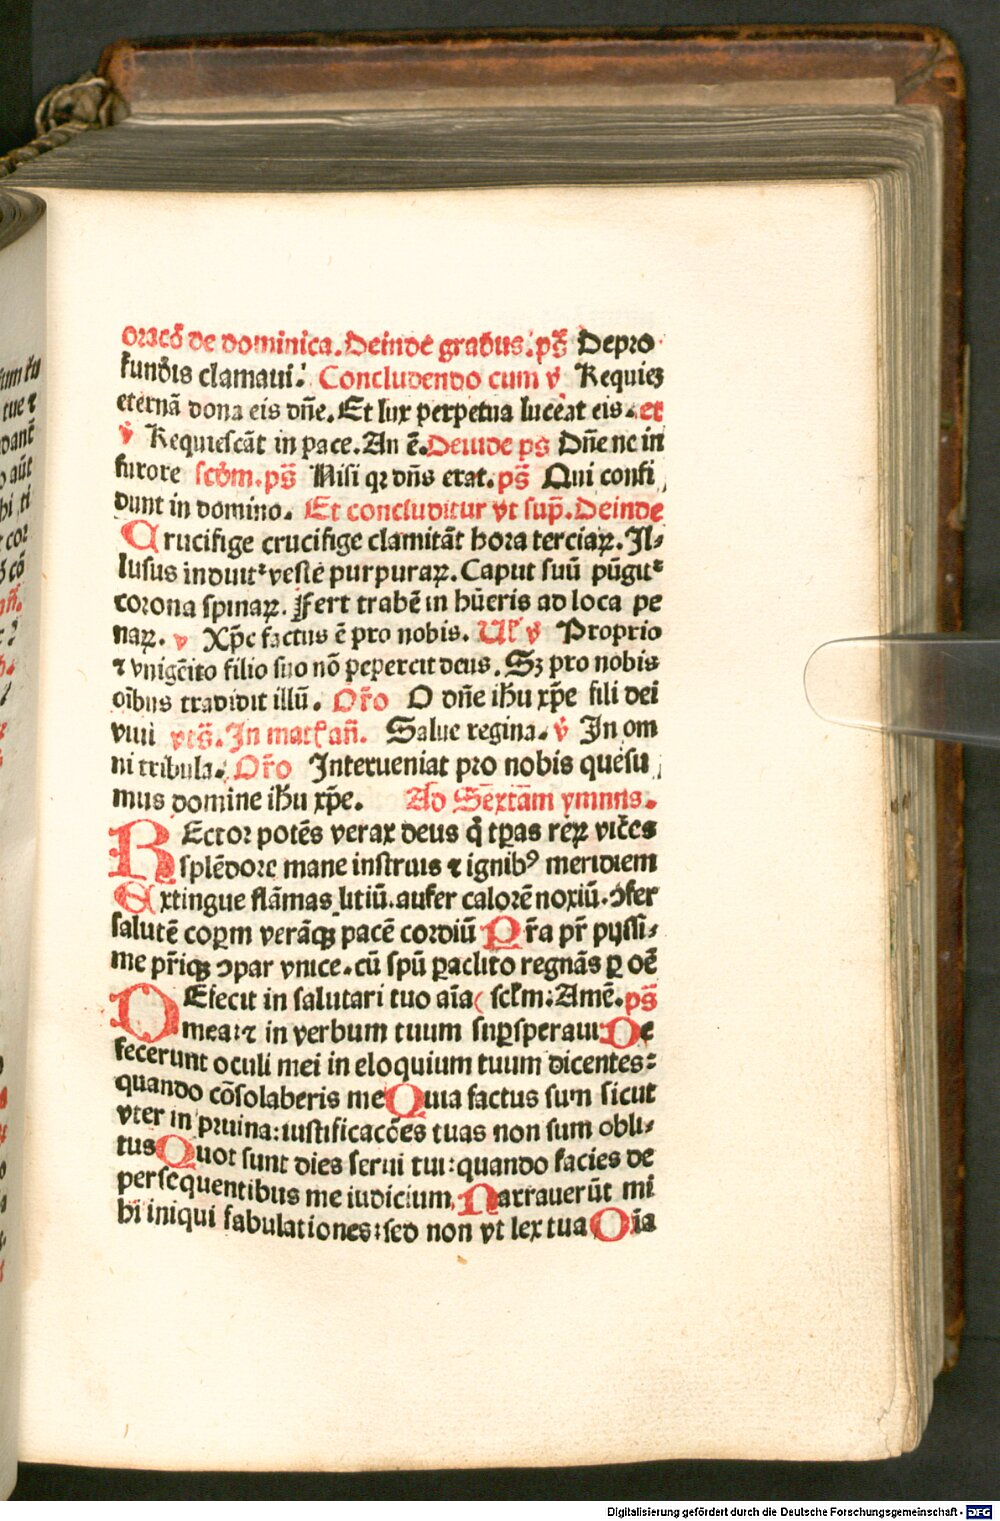 oracō de dominica. Deinde gradus. ps̄ Depro
fundis clamaui. Concludendo cum v̄ Requiez
eternā dona eis dn̄e. Et lux perpetua luceat eis. et
v̄ Requiescāt in pace. An ē. Deinde ps̄ Dn̄e ne in
furore scd̄m. ps̄ Nisi qꝛ dn̄s erat. ps̄ Qui confi
dunt in domino. Et concluditur vt sup̄. Deinde
Crucifige crucifige clamitāt hora terciaꝝ. Il⸗
lusus induit᷑ veste purpuraꝝ. Caput suū pūgit᷑
corona spinaꝝ. Fert trabē in hūeris ad loca pe
naꝝ. v Xp̄c factus ē pro nobis. Ul̄ v̄ Proprio
⁊ vnigēito filio suo nō pepercit deus. Sꝫ pro nobis
oībus tradidit illū. Or̄o O dn̄e ih̄u xp̄e fili dei
viui In mat̄ an̄. Salue regina. v̄ In om
ni tribula. Or̄o Interueniat pro nobis quesu
mus domine ih̄u xp̄e. Ad Sextam ymnus.
REctor potēs verax deus q̄ tꝑas reꝝ vices
splēdore mane instruis ⁊ ignibꝰ meridiem
Extingue flāmas litiū. aufer calorē noxiū. ↄfer
salutē coꝝm verāqꝫ pacē cordiū Pr̄a pr̄ pyssi⸗
me pr̄iqꝫ ↄpar vnice. cū spū ꝑaclito regnās ꝑ oē
DEfecit in salutari tuo aīa scl̄m: Amē. ps̄
mea: ⁊ in verbum tuum suꝑsperaui: De
fecerunt oculi mei in eloquium tuum dicentes:
quando cōsolaberis me Quia factus sum sicut
vter in pruina: iustificacōes tuas non sum obli⸗
tus Quot sunt dies serui tui: quando facies de
persequentibus me iudicium. Narrauerūt mi
hi iniqui fabulationes: sed non vt lex tua Oīa
Digitalisierung gefördert durch die Deutsche Forschungsgemeinschaft - DFG